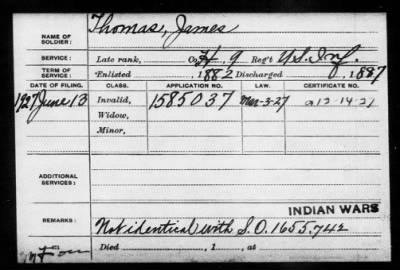 Thomas, James
NAME OF SOLDIER:
SERVICE: Late rank, Co. H, 9 Reg't U.S. Inf.
TERM OF SERVICE: Enlisted , 1882 Discharged , 1887
DATE OF FILING. CLASS. APPLICATION NO. LAW. CERTIFICATE NO.
1927 June 13 Invalid, 1585037 Mar-3-27 a 12-14-27
Widow,
Minor,
ADDITIONAL SERVICES:
INDIAN WARS
REMARKS: Not identical with S.O. 1655.742
Died , 1 , at